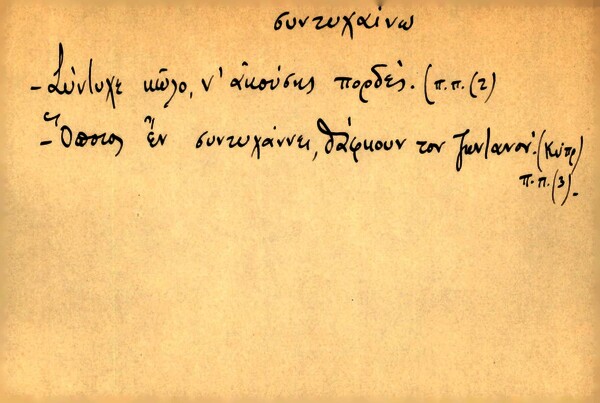 συντυχαίνω
- Σύντυχε κῶλο, ν' ἀκούσῃς πορδές. (π.π. (2)
- Ὅποιος ἒν συντυχάννει, θάφκουν τον ζωντανόν. (Κύπρ)
π.π. (3).